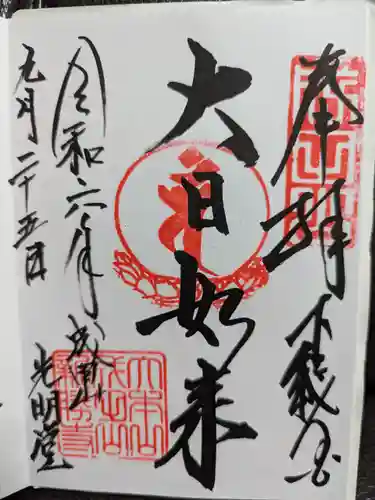 奉拝
不殺生
大日如来
令和六年
成田山
光明堂
九月二十五日